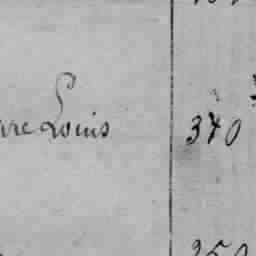 rre Louis 370